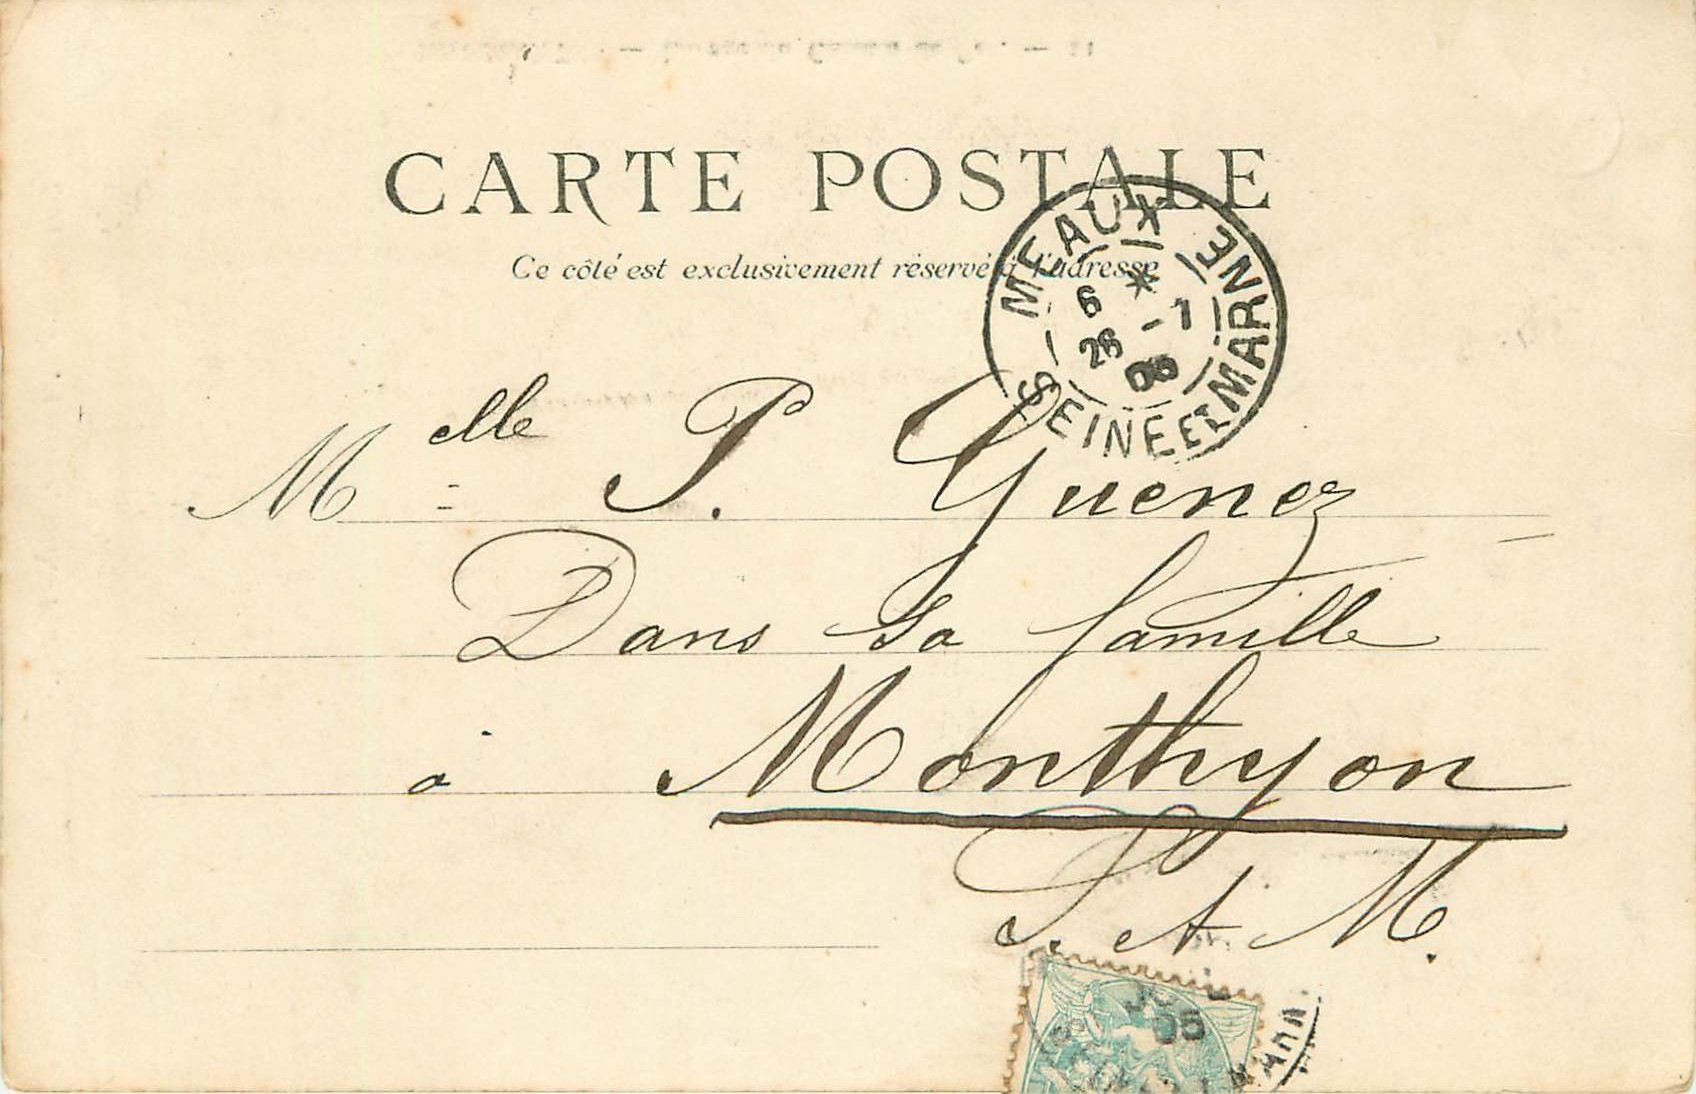 CARTE POSTALE
Ce côté est exclusivement réservé à l'adresse
MEAUX
6 * 26 -1 06
SEINE ET MARNE
Melle P. Guenez
Dans sa famille
à Monthyon
S. et M.
05